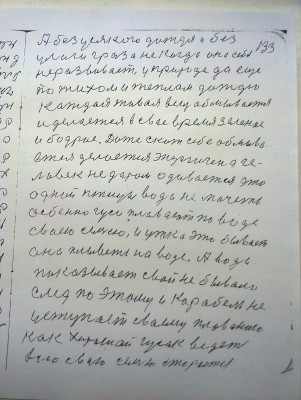 А без всякого дождя и без 133
гроза не когда она себя
не развивает, у природе да еще
по тихом и теплам дождю
Каждая живая вещ обмывается
и делается в свае время зелёние
и бодрае, Даже скот себе обмыва
ется делается энергичен а че-
ловек не даром одивается это
одной птицы водь не мочеть
особенно гуси плавают по воде
сваею семею, и утка это бывает
она плывет на воде. А водь
показывает свой не бывало
след по этому и Карабель не
уступает сваему плаванию
как хороший гусак ведет
всю сваю семю